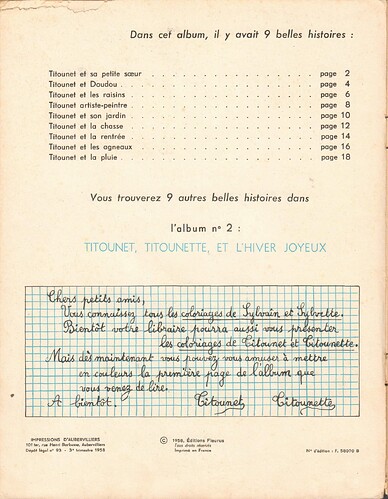 Dans cet album, il y avait 9 belles histoires :
Titounet et sa petite sœur . . . . . . . . . . . . . page 2
Titounet et Doudou . . . . . . . . . . . . . page 4
Titounet et les raisins . . . . . . . . . . . . . page 6
Titounet artiste-peintre . . . . . . . . . . . . . page 8
Titounet et son jardin . . . . . . . . . . . . . page 10
Titounet et la chasse . . . . . . . . . . . . . page 12
Titounet et la rentrée . . . . . . . . . . . . . page 14
Titounet et les agneaux . . . . . . . . . . . . . page 16
Titounet et la pluie . . . . . . . . . . . . . page 18
Vous trouverez 9 autres belles histoires dans
l'album n° 2 :
TITOUNET, TITOUNETTE, ET L'HIVER JOYEUX
Chers petits amis,
Vous connaissez tous les coloriages de Sylvain et Sylvette.
Bientôt votre libraire pourra aussi vous présenter
les coloriages de Titounet et Titounette.
Mais dès maintenant vous pouvez vous amuser à mettre
en couleurs la première page de l'album que
vous venez de lire.
A bientôt. Titounet Titounette
IMPRESSIONS D'AUBERVILLIERS
101 ter, rue Henri Barbusse, Aubervilliers
Dépôt légal n° 83 - 3e trimestre 1958
© 1958, Éditions Fleurus
Tous droits réservés
Imprimé en France
N° d'édition : F. 58070 B